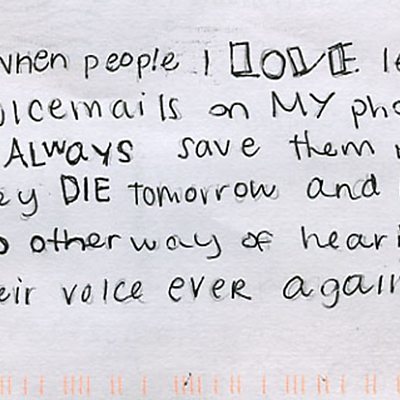 when people I LOVE le
oicemails on MY pho
ALWAYS save them
ey DIE tomorrow and
o other way of heari
eir voice EVER again